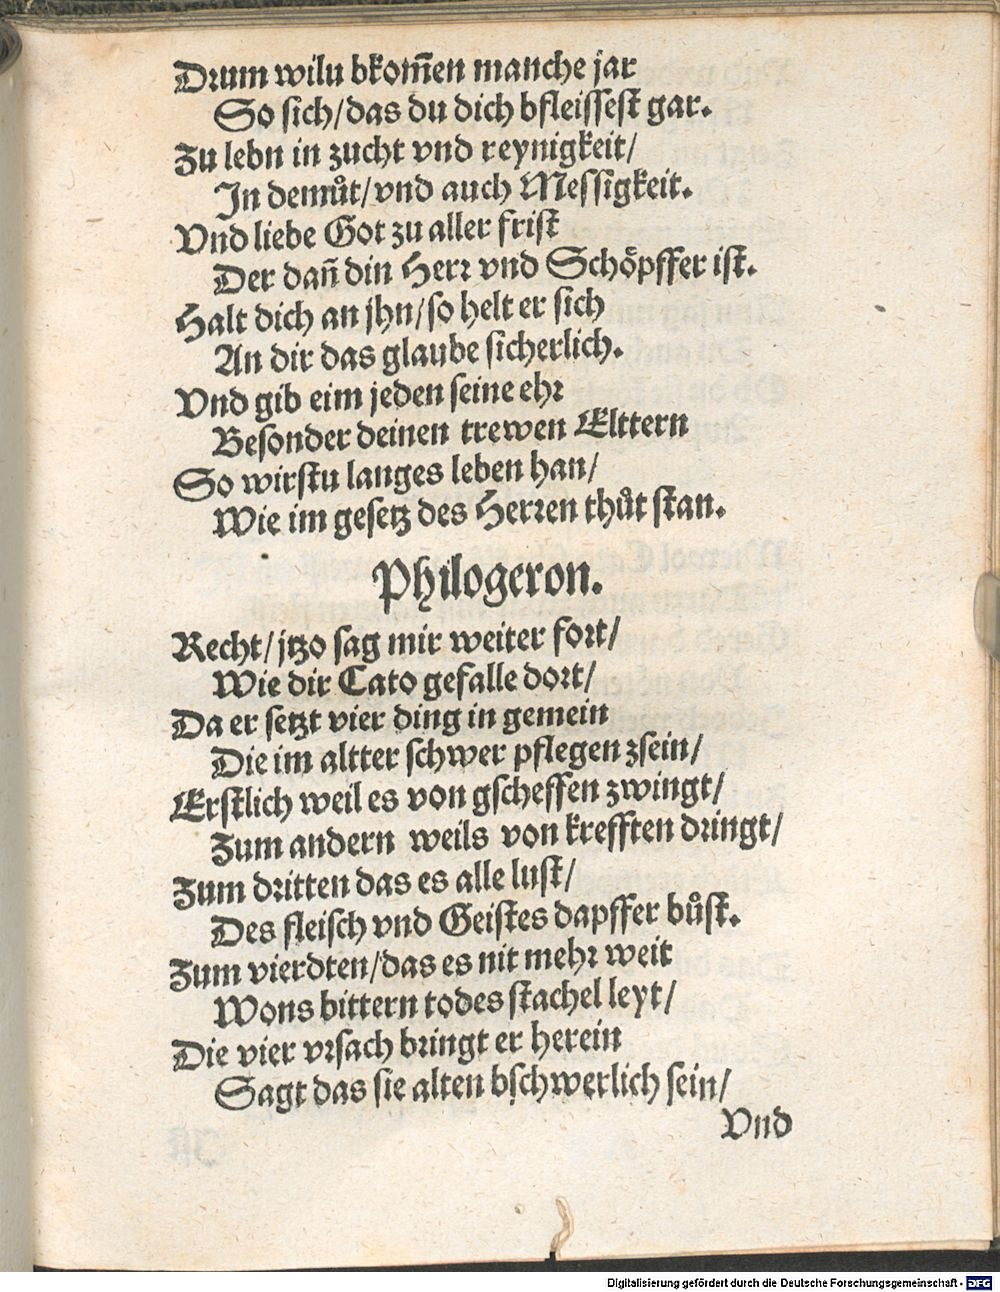 Drum wilu bkom̃en manche jar
So sich/das du dich bfleissest gar.
Zu lebn in zucht vnd reynigkeit/
In demůt/vnd auch Messigkeit.
Vnd liebe Got zu aller frist
Der dañ din Herr vnd Schöpffer ist.
Halt dich an jhn/so helt er sich
An dir das glaube sicherlich.
Vnd gib eim jeden seine ehr
Besonder deinen trewen Elttern
So wirstu langes leben han/
Wie im gesetz des Herren thůt stan.
Philogeron.
Recht/jtzo sag mir weiter fort/
Wie dir Cato gefalle dort/
Da er setzt vier ding in gemein
Die im altter schwer pflegen zsein/
Erstlich weil es von gscheffen zwingt/
Zum andern weils von krefften dringt/
Zum dritten das es alle lust/
Des fleisch vnd Geistes dapffer bůst.
Zum vierdten/das es nit mehr weit
Wons bittern todes stachel leyt/
Die vier vrsach bringt er herein
Sagt das sie alten bschwerlich sein/
Vnd
Digitalisierung gefördert durch die Deutsche Forschungsgemeinschaft - DFG